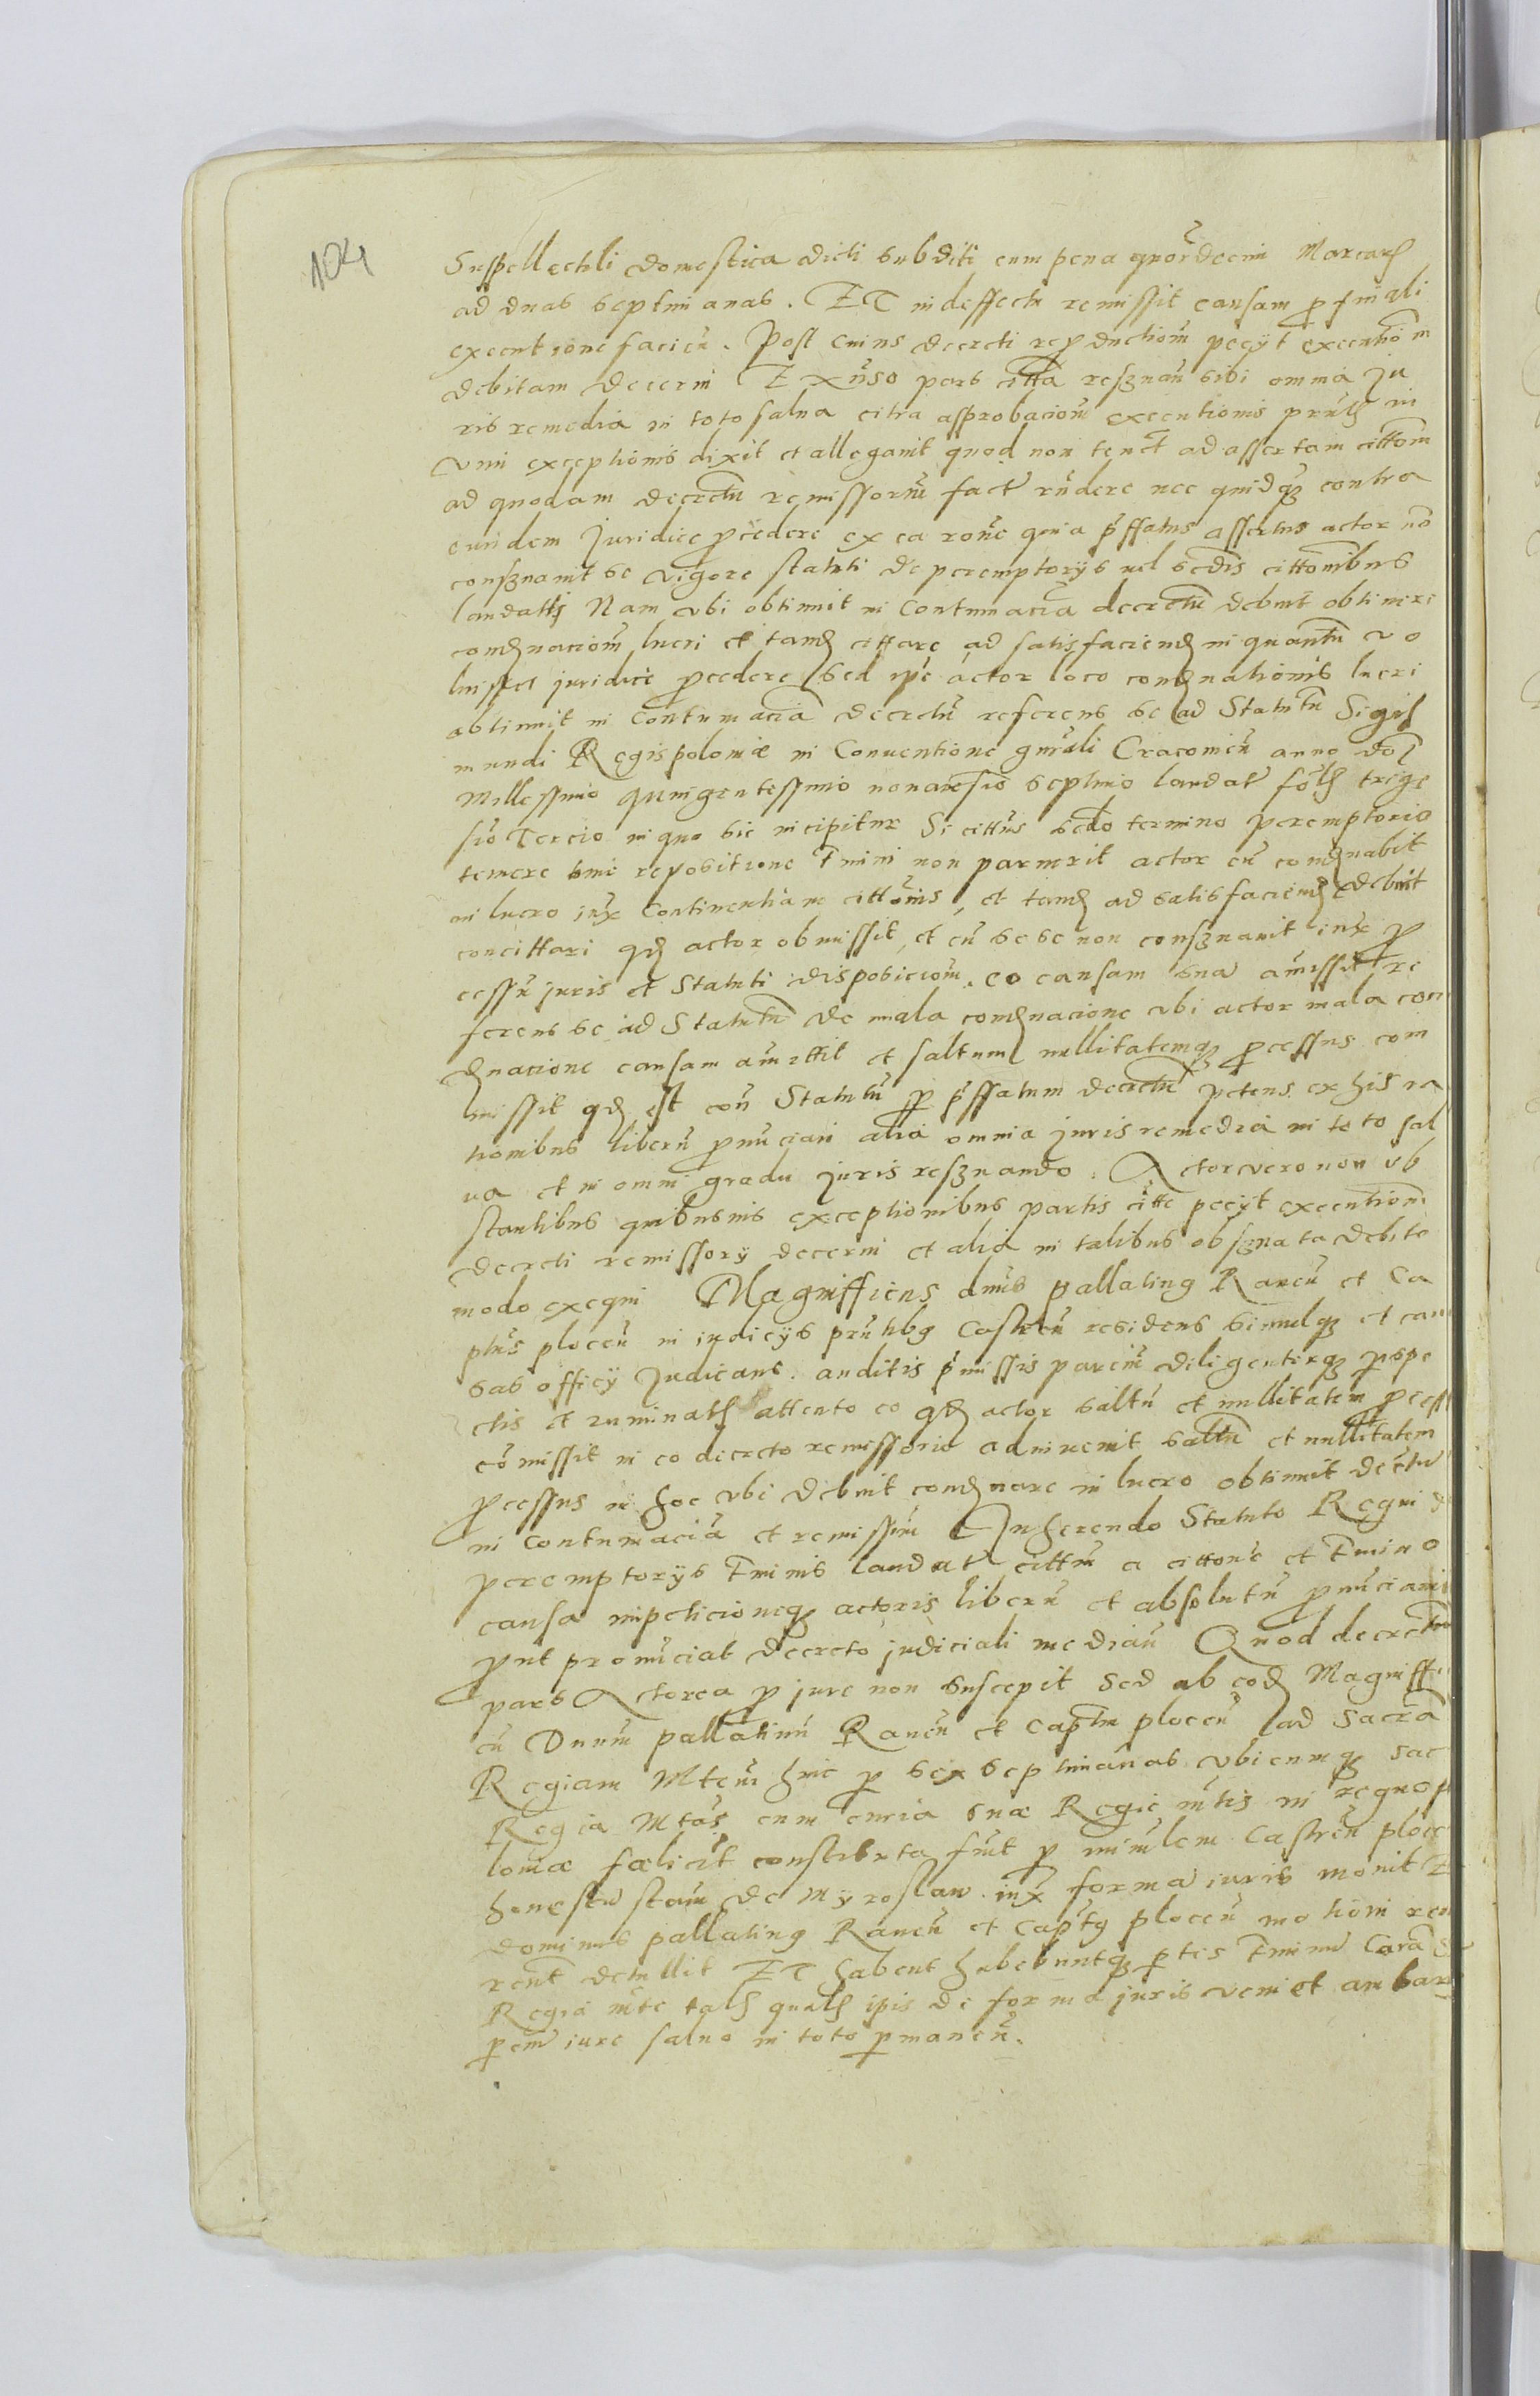 104
Suppellectili domestica dicti subditi cum pena quordecim Marcarz
ad duas septimanas. ET in deffectu remissit causam p finali
executione facien. Post cuius decreti reproductiom peciit executiom
debitam decerni Ex verso pars citta reservan sibi omnia Ju
ris remedia in toto salva citra approbaciom executionis prntis in
vim exceptionis dixit et allegavit quod non tenet ad assertam cittom
ad quodam decretu remissoriu fact rndere nec quidqz contra
eundem Juridice procedere ex ea rone quia pffatus assertus actor no
conservavit se vigore statuti de peremptorys vel secdis cittonibus
laudatti Nam ubi obtinuit in Contumacia decretu debuit obtinere
condemnaciom lucri et tandem cittare ad satisfaciend in quantu vo
luisset juridice procedere sed ipe actor loco condemnationis lucri
obtinuit in Contumacia decretu referens se ad Statutu Sigis
mundi Regis polonie in Conventione gnrali Cracovien anno doi
Millessimo quingentessimo nonagesio septimo laudat folis trige
sio Tercio in quo sic incipitur Si cittus secdo termino peremptorio
temere sine repositione Tmini non paruerit actor eu condemnabit
in lucro iux Continentiam cittonis, et tandem ad satisfaciend debuit
concittari qd actor obmissit, et cu sese non conservavit iux pro
cessu juris et Statuti disposiciom. eo causam sua amissit re
ferens se ad Statutu de mala condemnacione ubi actor mala con
demnacione causam amittit et saltum nullitatemqz processus com
missit qd est con Statutu p pffatum decretu petens ex his ra
tionibus liberu pronunciari alia omnia juris remedia in toto sal
va et in omni gradu juris reservando. Actor vero non ob
stantibus quibusvis exceptionibus partis citte peciit executiom
decreti remissory decerni et alia in talibus observata debito
modo exequi Magnifficus dnus pallatinus Raven et Ca
ptus plocen in iudicys prntibus Castren residens simulqz et cau
sas officy Judicans. auditis pmissis parcium diligenterqz prospe
ctis et ruminatis attento eo qd actor saltu et nullitatem process
comissit in eo decreto remissorio adinvenit saltu et nullitatem
processus in hoc ubi debuit condemnare in lucro obtinuit decretu
in contumacia et remissim Inherendo Statuto Regni d
peremptorys Tminis laudat cittum a cittone et Tmino
causa impeticioneqz actoris liberu et absolutu pronunciavit
prout pronunciat decreto judiciali median Quod decretu
pars Actorea p jure non suscepit Sed ab eod Magniffi
cu Dnum pallatinu Raven et Captm plocen ad Sacra
Regiam Mtem hinc p sex septimanas ubicumqz sac
Regia Mtas cum curia sua Regie mtis in regno po
lonie foelicit constituta fuit p minrlem Castren plocen
honestu stam de Myroslaw. iux forma iuris monit E
dominus pallatinus Raven et Captus plocen motiom ren
rent detullit ET habent habebuntqz ptes Tminu Cora S
Regia mte talis qualis ipis de forma juris veniet ambar
pcm iure salvo in toto pmanen.